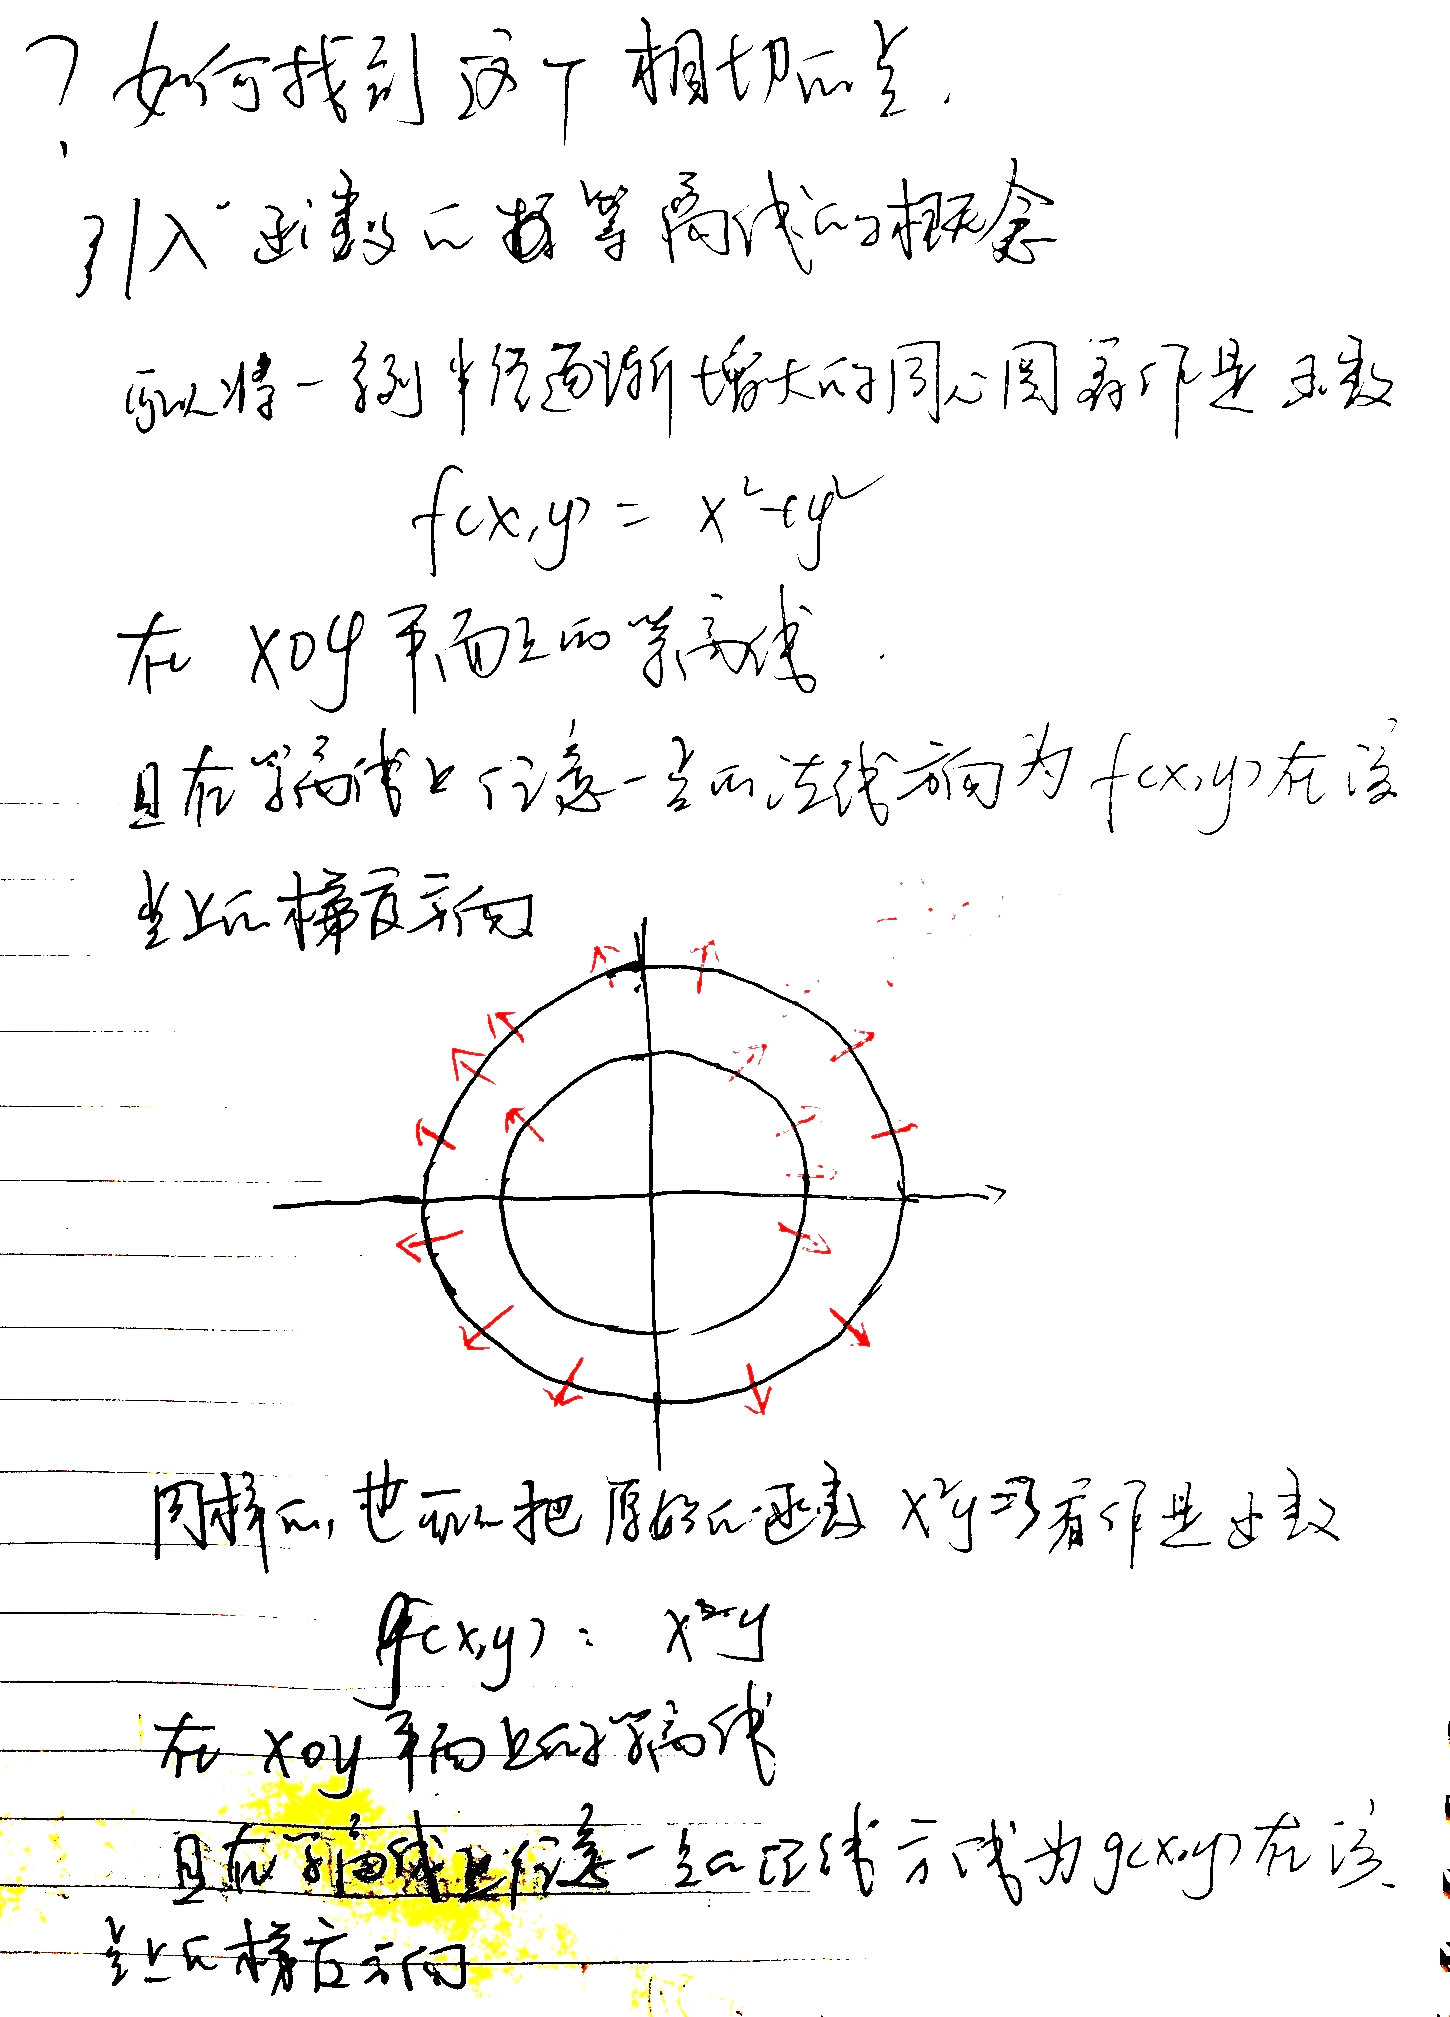 ? 如何找到这个相切的点.
引入函数的等高线的概念
可以将一系列半径逐渐增大的同心圆看作是函数
f(x,y) = x²+y²
在 xoy 平面上的等高线.
且在等高线上任意一点的法线方向为 f(x,y) 在该
点上的梯度方向
同样的, 也可以把原始的函数 x²y=3 看作是函数
g(x,y) = x²y
在 xoy 平面上的等高线
且在等高线上任意一点的法线方线为 g(x,y) 在该
点上的梯度方向